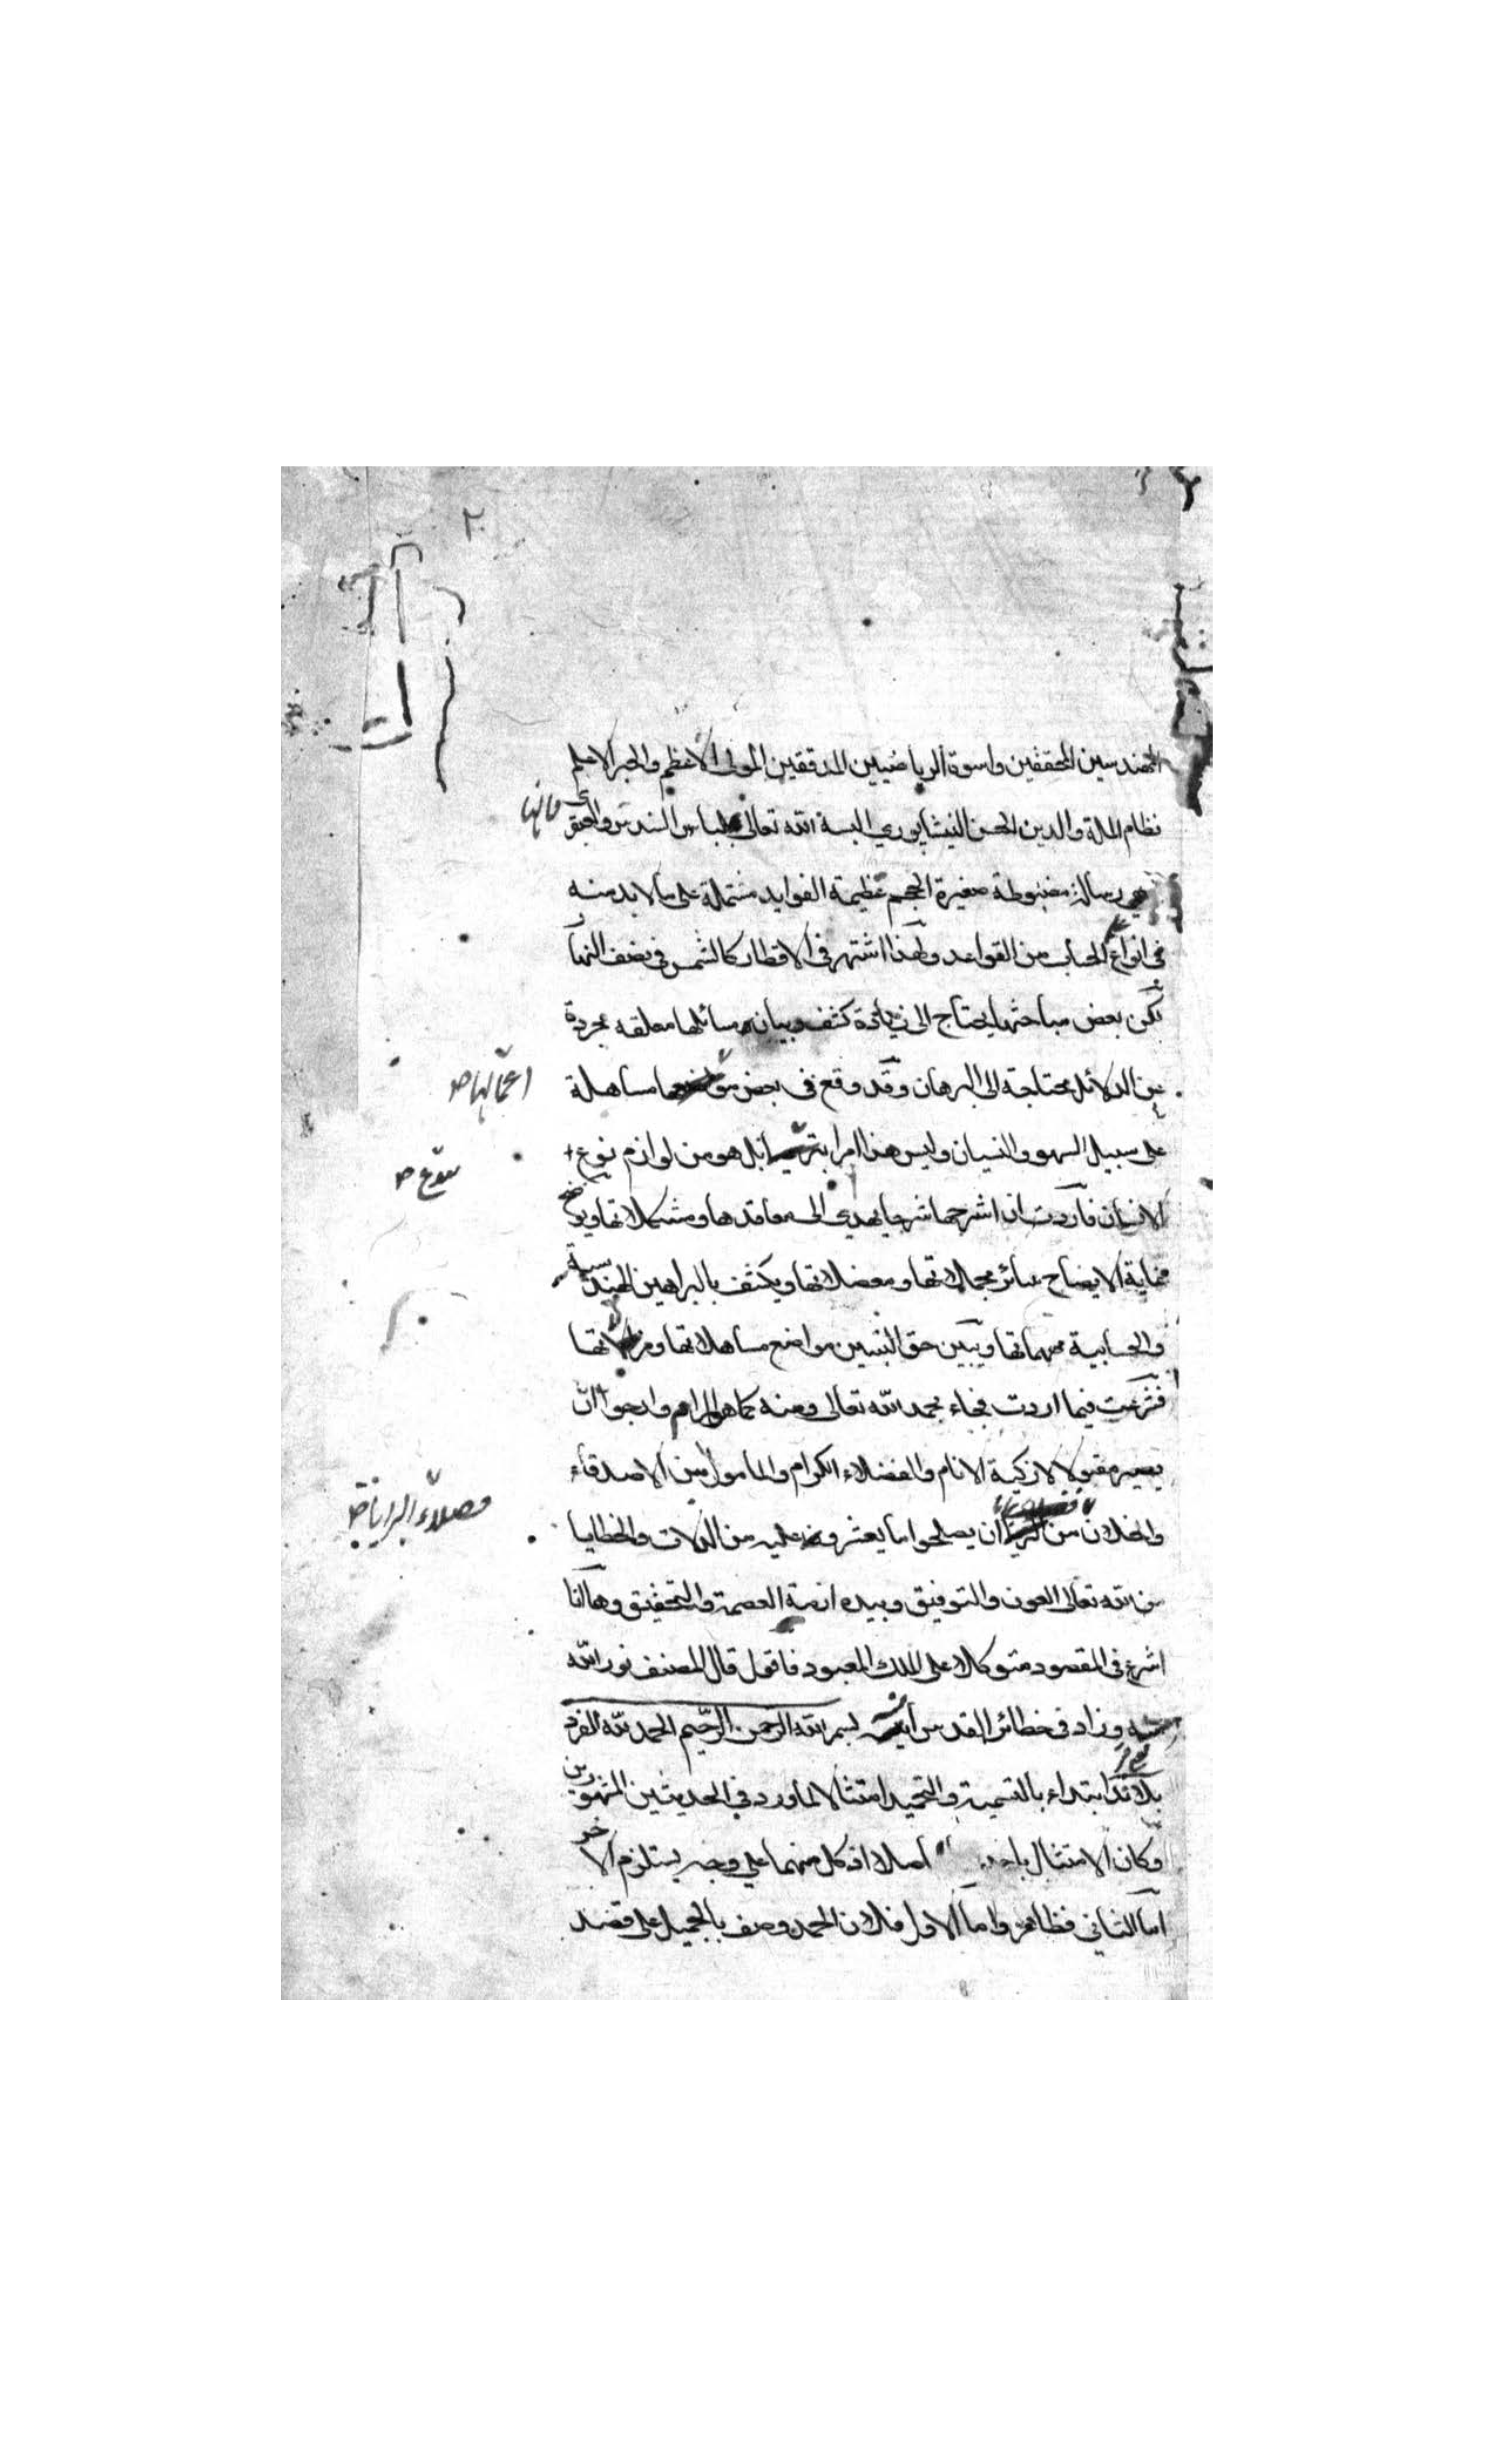 ٢
المهندسين المحققين واسوة الرياضيين المدققين المولى الاعظم والحبر الاعلم
نظام الملة والدين الحسن النيشابوري البسه الله تعالى لباس السندس والعبقرى فانها
رسالة مضبوطة صغيرة الحجم عظيمة الفوايد مشتملة على ما لا بد منه
فى انواع الحساب من القواعد ولهذا اشتهر فى الاقطار كالشمس فى نصف النهار
لكن بعض مباحثها يحتاج الى زيادة كشف وبيان ومسائلها معلقه مجردة
عن الدلائل محتاجة الى البرهان وقد وقع فى بعض مساهلة
اعمالها صح
على سبيل السهو والنسيان وليس هذا امرا بل هو من لوازم نوع
صح
الانسان فاردت ان اشرحها شرحا يهدى الى معاقدها ومشكلاتها ويوضح
غاية الايضاح سائر مجملاتها ومعضلاتها ويكشف بالبراهين الهندسية
والحسابية مبهماتها ويبين حق التبيين مواضع مساهلاتها
فشرعت فيما اردت فجاء بحمد الله تعالى ومنه كما هو المرام وارجو ان
يصير مقبولا لازكية الانام والفضلاء الكرام والمامول من الاصدقاء
والخلان من ان يصلحوا ما يعثروا عليه من الزلات والخطايا
فضلاء البرايا صح
من الله تعالى العون والتوفيق وبيده ازمة العصمة والتحقيق وها انا
اشرع فى المقصود متوكلا على الملك المعبود فاقول قال المصنف نور الله
وزاد فى حظائر القدس بسم الله الرحمن الرحيم الحمد لله الفرد
بلا ند ابتداء بالتسمية والتحميد امتثالا لما ورد فى الحديثين المشهورين
وكان الامتثال اصلا اذ كل منهما على وجه يستلزم الاخر
اما الثانى فظاهر واما الاول فلان الحمد وصف بالجميل على قصد